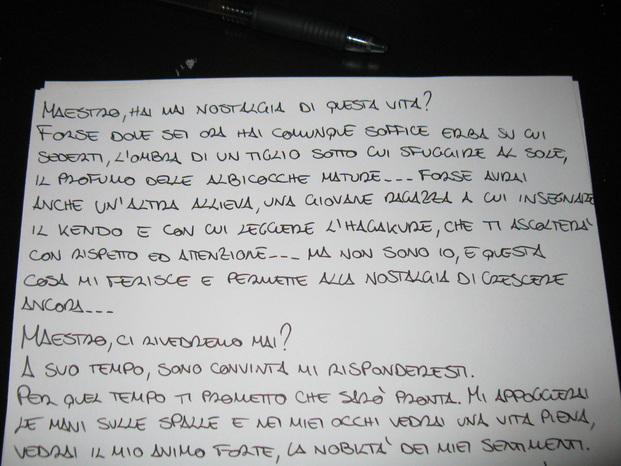 MAESTRO, HAI MAI NOSTALGIA DI QUESTA VITA?
FORSE DOVE SEI ORA HAI COMUNQUE SOFFICE ERBA SU CUI
SEDERTI, L'OMBRA DI UN TIGLIO SOTTO CUI SFUGGIRE AL SOLE,
IL PROFUMO DELLE ALBICOCCHE MATURE... FORSE AVRAI
ANCHE UN'ALTRA ALLIEVA, UNA GIOVANE RAGAZZA A CUI INSEGNARE
IL KENDO E CON CUI LEGGERE L'HAGAKURE, CHE TI ASCOLTERA'
CON RISPETTO ED ATTENZIONE... MA NON SONO IO, E QUESTA
COSA MI FERISCE E PERMETTE ALLA NOSTALGIA DI CRESCERE
ANCORA...
MAESTRO, CI RIVEDREMO MAI?
A SUO TEMPO, SONO CONVINTA MI RISPONDERESTI.
PER QUEL TEMPO TI PROMETTO CHE SARÒ PRONTA. MI APPOGGERAI
LE MANI SULLE SPALLE E NEI MIEI OCCHI VEDRAI UNA VITA PIENA,
VEDRAI IL MIO ANIMO FORTE, LA NOBILTA' DEI MIEI SENTIMENTI.